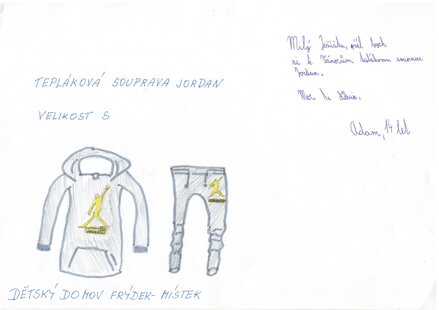 TEPLÁKOVÁ SOUPRAVA JORDAN
VELIKOST S
Milý Ježíšku, přál bych
si k Vánocům soupravu
Jordan.
Moc Ti děkuji.
Adam, 14 let
DĚTSKÝ DOMOV FRÝDEK-MÍSTEK